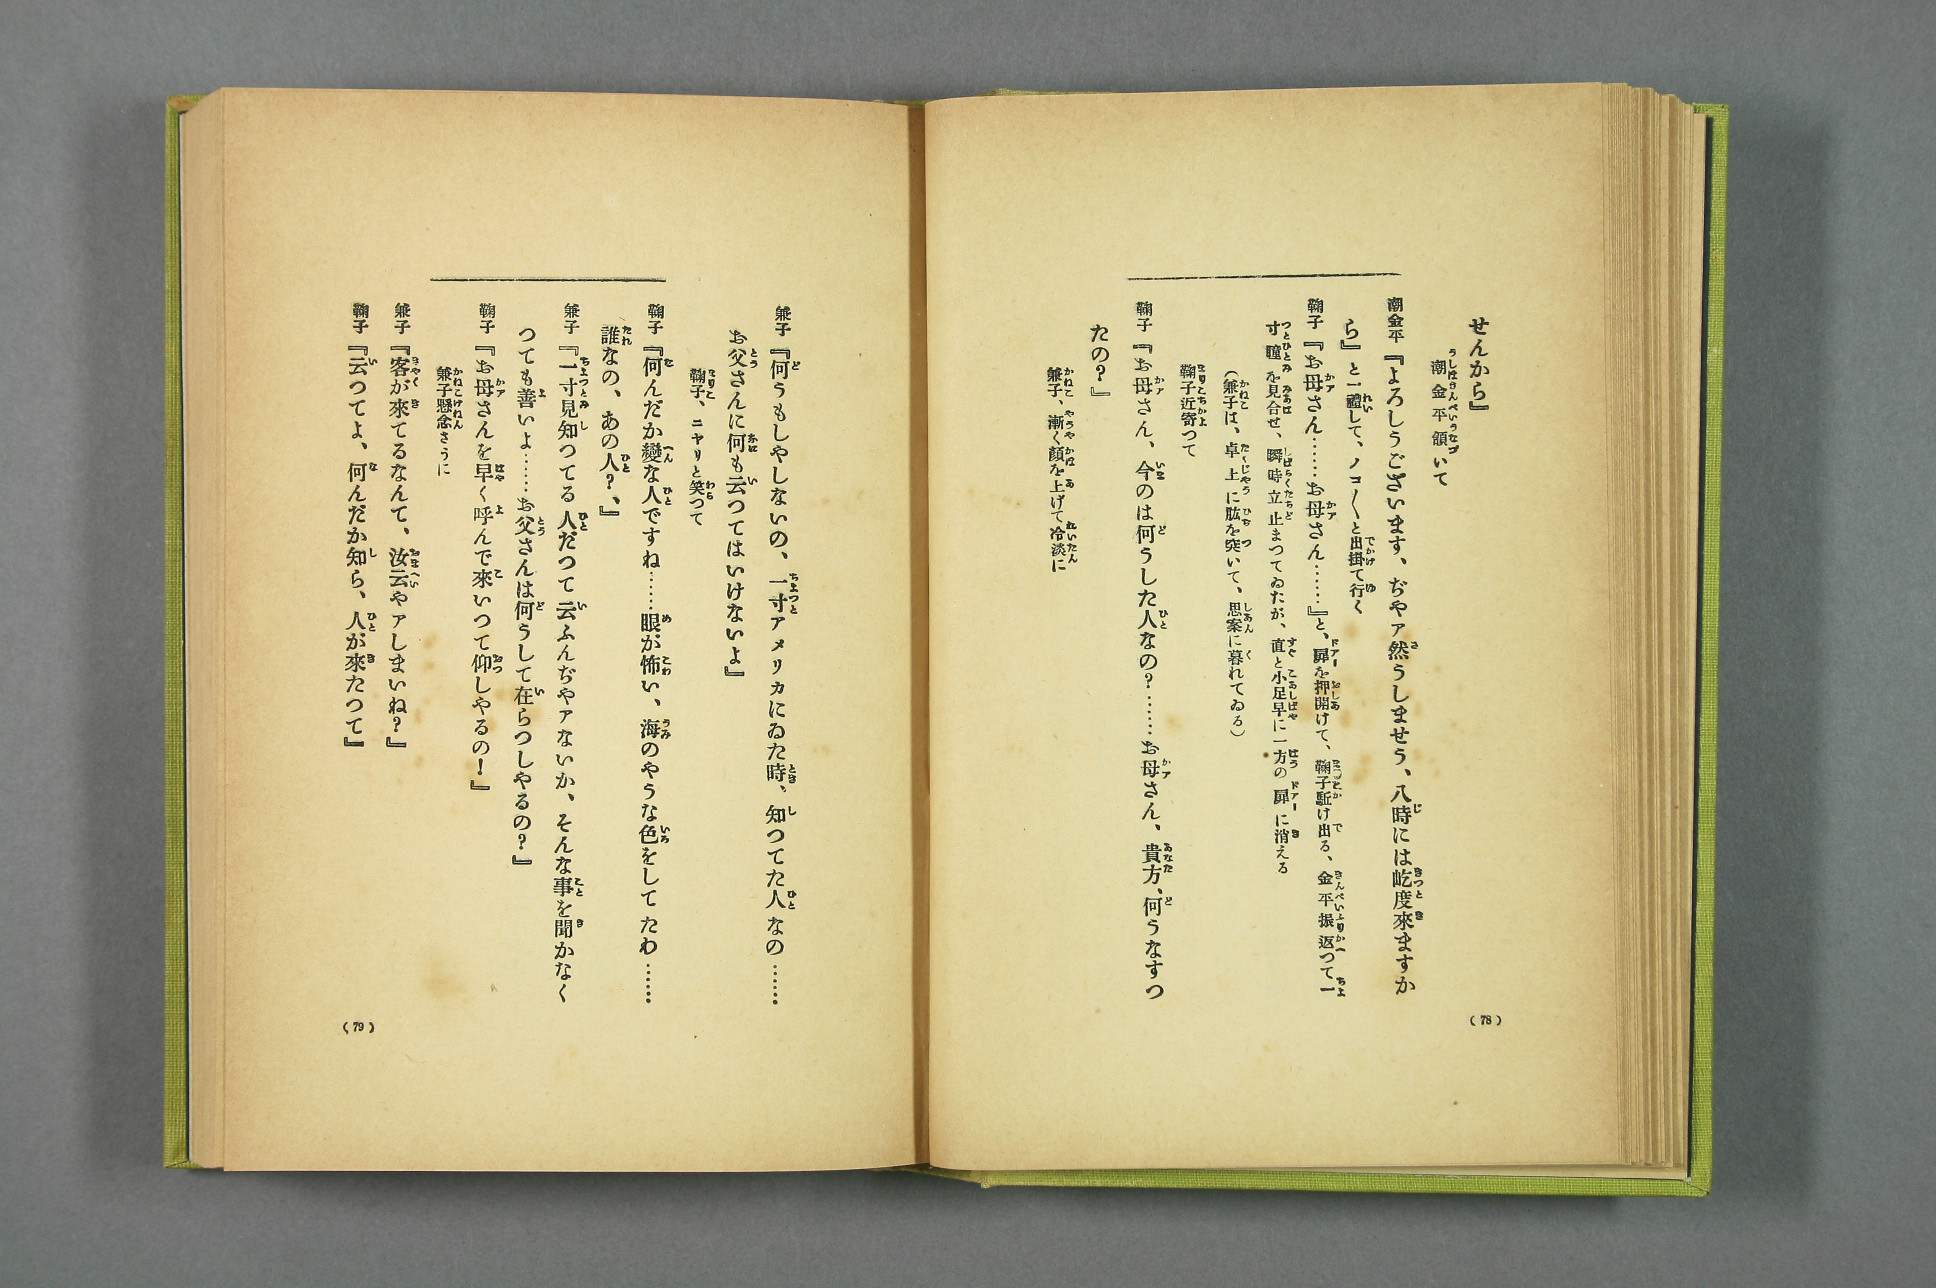 せんから』
潮金平領いて
潮金平『よろしうございます、ぢやァ然うしませう、八時には屹度來ますか
ら』と一禮して、ノコ〱と出掛て行く
鞠子『お母さん……お母さん……』と、扉を押開けて、鞠子駈け出る、金平振返つて一
寸瞳を見合せ、瞬時立止まつてゐたが、直と小足早に一方の扉に消える
(兼子は、卓上に肱を突いて、思案に暮れてゐる)
鞠子近寄つて
鞠子『お母さん、今のは何うした人なの?……お母さん、貴方、何うなすつ
たの?』
兼子、漸く顔を上げて冷淡に
(78)
兼子『何うもしやしないの、一寸アメリカにゐた時、知つてた人なの……
お父さんに何も云つてはいけないよ』
鞠子、ニヤリと笑つて
鞠子『何んだか變な人ですね……眼が怖い、海のやうな色をしてたわ……
誰なの、あの人?、』
兼子『一寸見知つてる人だつて云ふんぢやァないか、そんな事を聞かなく
つても善いよ……お父さんは何うして在らつしやるの?』
鞠子『お母さんを早く呼んで來いつて仰しやるの!』
兼子懸念さうに
兼子『客が來てるなんて、汝云やァしまいね?』
鞠子『云つてよ、何んだか知ら、人が來たつて』
(79)